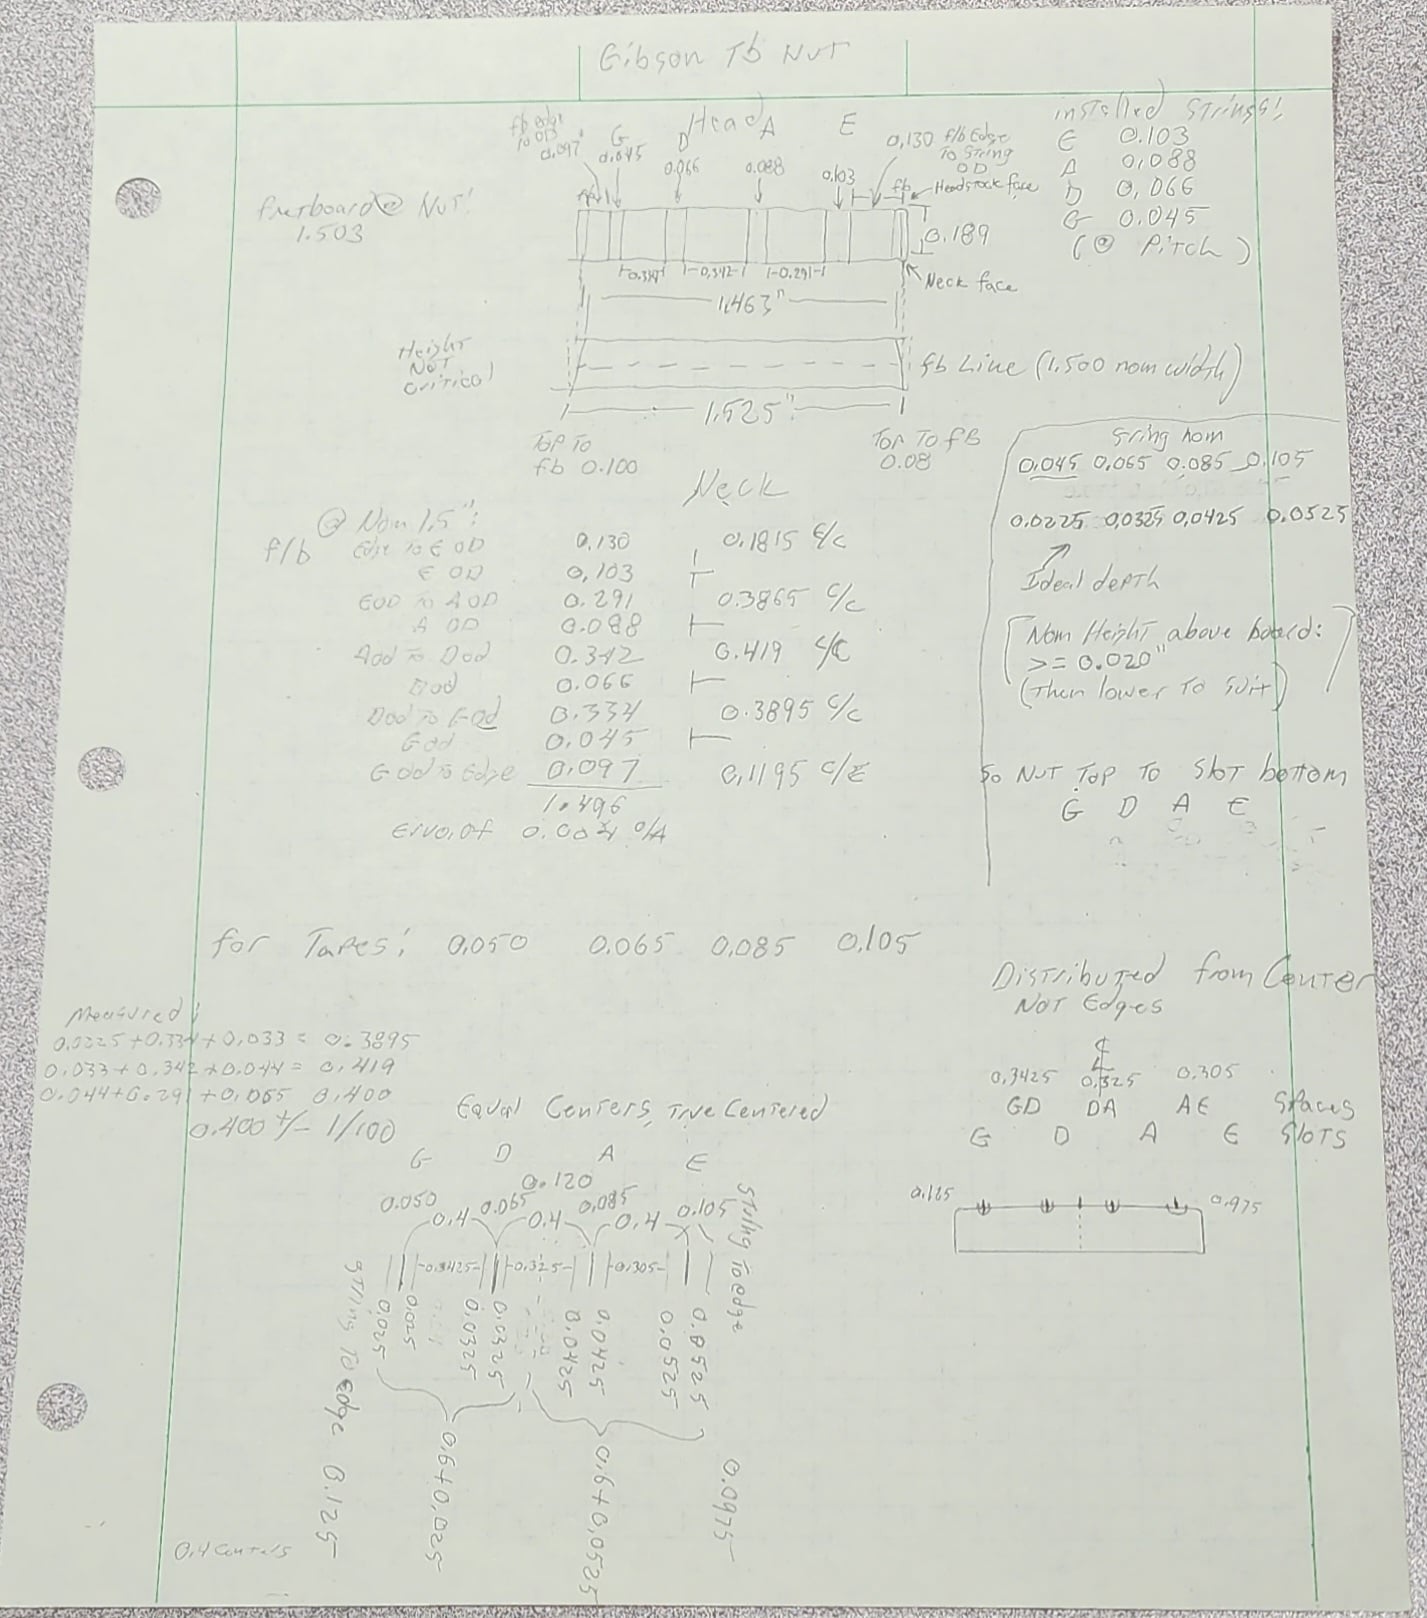 Gibson Tb Nut
fb edge
to OD
0.097"
G
0.045
D
0.066
Head
A
0.088
E
0.103
0.130 f/b Edge
To String
OD
fb
Headstock face
installed Strings:
E 0.103
A 0.088
D 0.066
G 0.045
(@ Pitch)
fretboard @ Nut:
1.503
0.189
0.334
0.342
0.291
Neck face
1.463"
Height
Not
Critical
fb Line (1.500 nom width)
1.525"
Top To
fb 0.100
Top To fB
0.08
Neck
String nom
0.045 0.065 0.085 0.105
0.0225 0.0325 0.0425 0.0525
Ideal depth
[Nom Height above board:
>= 0.020"
(Then lower To suit)]
So Nut Top To Slot bottom
G D A E
@ Nom 1.5":
f/b Edge To E OD 0.130 0.1815 E/c
E OD 0.103
EOD To A OD 0.291 0.3865 c/c
A OD 0.088
Aod To Dod 0.342 0.419 c/c
Dod 0.066
Dod To God 0.334 0.3895 c/c
God 0.045
G od To Edge 0.097 0.1195 c/E
1.496
Error of 0.004 O/A
for Tapes: 0.050 0.065 0.085 0.105
Measured:
0.0225 + 0.334 + 0.033 = 0.3895
0.033 + 0.342 + 0.044 = 0.419
0.044 + 0.291 + 0.065 0.400
0.400 +/- 1/100
Distributed from Center
Not Edges
℄
0.3425 0.325 0.305
GD DA AE Spaces
G D A E Slots
0.125
0.975
Equal Centers, True Centered
G D A E
0.120
0.050 0.065 0.085 0.105
0.4 0.4 0.4
0.3425 0.325 0.305
String To edge
0.025 0.025 0.0325 0.0325 0.0425 0.0425 0.0525 0.0525
String To Edge 0.125
0.6+0.025
0.6+0.0525
0.0975
0.4 Centers